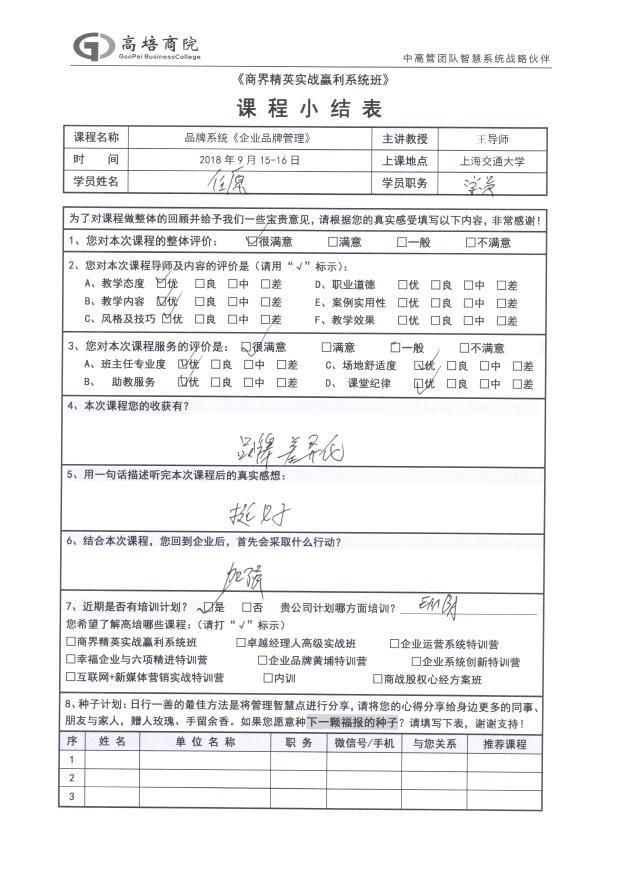 高培商院
GaoPei BusinessCollege
中高管团队智慧系统战略伙伴
《商界精英实战赢利系统班》
课程小结表
课程名称 品牌系统《企业品牌管理》 主讲教授 王导师
时 间 2018年9月15-16日 上课地点 上海交通大学
学员姓名 任原 学员职务 学员
为了对课程做整体的回顾并给予我们一些宝贵意见,请根据您的真实感受填写以下内容,非常感谢!
1、您对本次课程的整体评价: ☑很满意 □满意 □一般 □不满意
2、您对本次课程导师及内容的评价是(请用“√”标示):
A、教学态度 ☑优 □良 □中 □差 D、职业道德 □优 □良 □中 □差
B、教学内容 ☑优 □良 □中 □差 E、案例实用性 □优 □良 □中 □差
C、风格及技巧 ☑优 □良 □中 □差 F、教学效果 □优 □良 □中 □差
3、您对本次课程服务的评价是: ☑很满意 □满意 □一般 □不满意
A、班主任专业度 ☑优 □良 □中 □差 C、场地舒适度 ☑优 □良 □中 □差
B、 助教服务 ☑优 □良 □中 □差 D、 课堂纪律 ☑优 □良 □中 □差
4、本次课程您的收获有?
品牌差异化
5、用一句话描述听完本次课程后的真实感想:
挺好
6、结合本次课程,您回到企业后,首先会采取什么行动?
加强
7、近期是否有培训计划? ☑是 □否 贵公司计划哪方面培训? EMBA
您希望了解高培哪些课程:(请打“√”标示)
□商界精英实战赢利系统班 □卓越经理人高级实战班 □企业运营系统特训营
□幸福企业与六项精进特训营 □企业品牌黄埔特训营 □企业系统创新特训营
□互联网+新媒体营销实战特训营 □内训 □商战股权心经方案班
8、种子计划:日行一善的最佳方法是将管理智慧点进行分享,请将您的心得分享给身边更多的同事、
朋友与家人,赠人玫瑰、手留余香。如果您愿意种下一颗福报的种子?请填写下表,谢谢支持!
序 姓 名 单 位 名 称 职 务 微信号/手机 与您关系 推荐课程
1
2
3